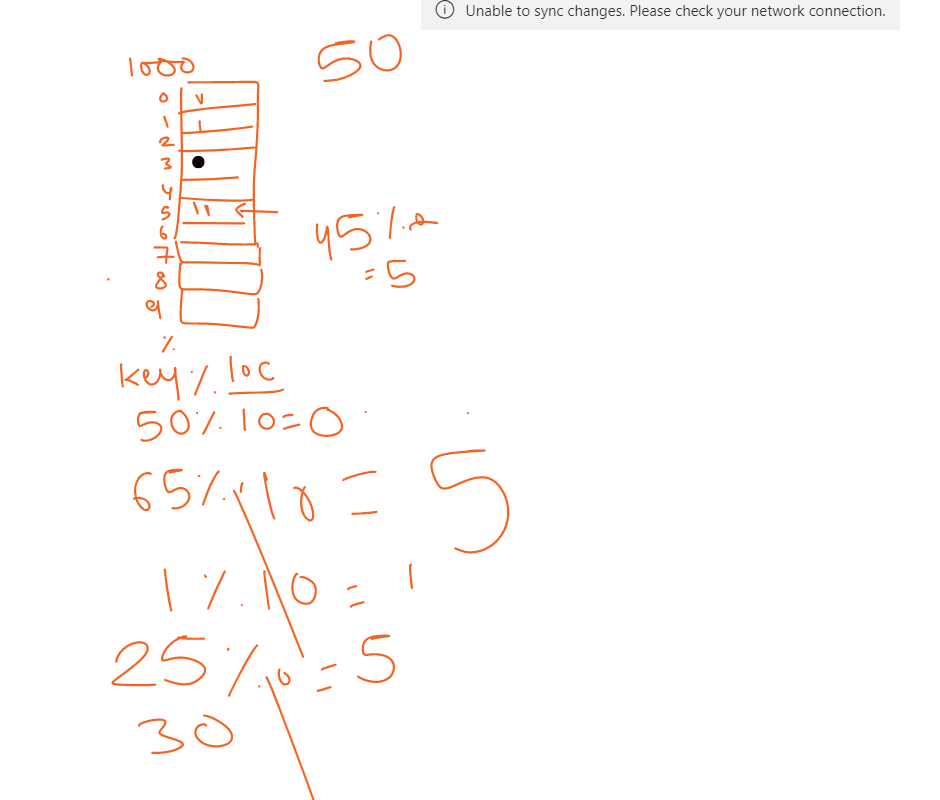 Unable to sync changes. Please check your network connection.
50
1000
0 v
1 1
2
3
4
5 11
6
7
8
9
45 %
= 5
%
key % loc
50 % 10 = 0
65 % 10 = 5
1 % 10 = 1
25 % 10 = 5
30